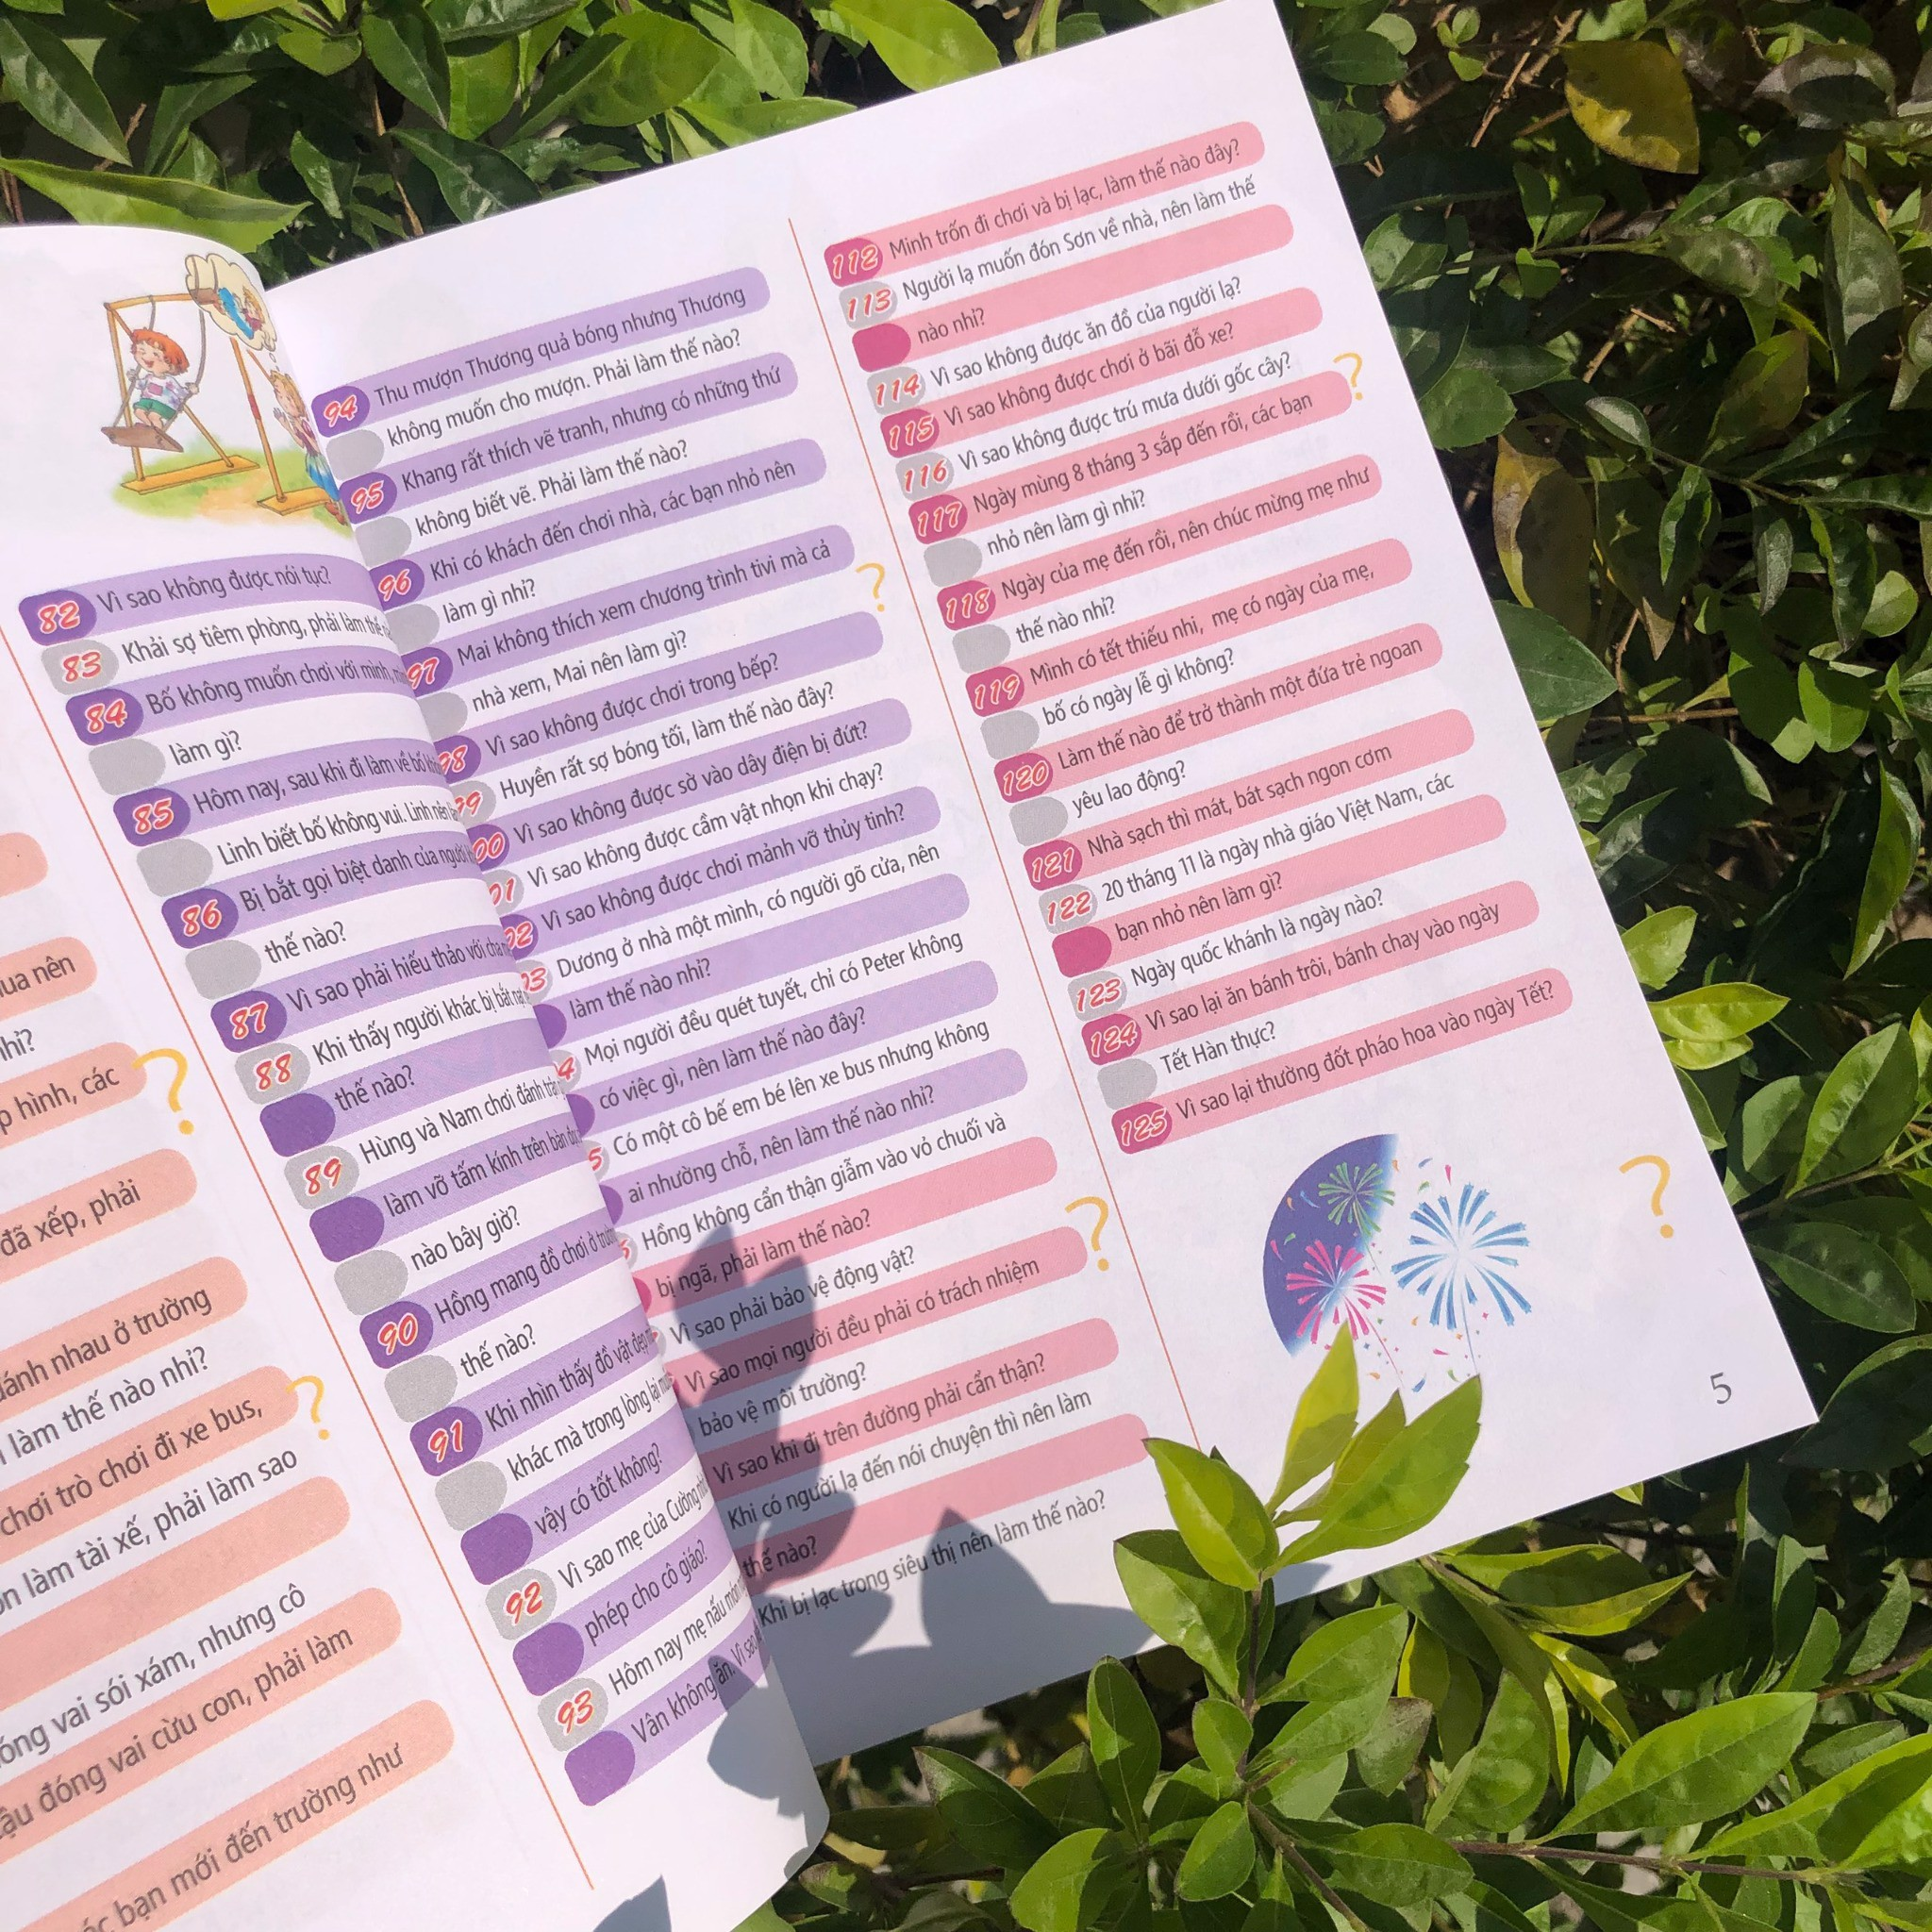 ua nên
hỉ?
p hình, các
đã xếp, phải
ánh nhau ở trường
làm thế nào nhỉ?
chơi trò chơi đi xe bus,
làm tài xế, phải làm sao
óng vai sói xám, nhưng cô
ậu đóng vai cừu con, phải làm
bạn mới đến trường như
82 Vì sao không được nói tục?
83 Khải sợ tiêm phòng, phải làm thế
84 Bố không muốn chơi với mình,
làm gì?
85 Hôm nay, sau khi đi làm về bố
Linh biết bố không vui. Linh nên
86 Bị bắt gọi biệt danh của người
thế nào?
87 Vì sao phải hiếu thảo với cha
88 Khi thấy người khác bị bắt nạt
thế nào?
89 Hùng và Nam chơi đánh trận
làm vỡ tấm kính trên bàn
nào bây giờ?
90 Hồng mang đồ chơi ở
thế nào?
91 Khi nhìn thấy đồ vật đẹp
khác mà trong lòng lại
vậy có tốt không?
92 Vì sao mẹ của Cường
phép cho cô giáo?
93 Hôm nay mẹ nấu món
Vân không ăn. Vì sao
94 Thu mượn Thương quả bóng nhưng Thương
không muốn cho mượn. Phải làm thế nào?
95 Khang rất thích vẽ tranh, nhưng có những thứ
không biết vẽ. Phải làm thế nào?
96 Khi có khách đến chơi nhà, các bạn nhỏ nên
làm gì nhỉ?
97 Mai không thích xem chương trình tivi mà cả
nhà xem, Mai nên làm gì?
98 Vì sao không được chơi trong bếp?
99 Huyền rất sợ bóng tối, làm thế nào đây?
00 Vì sao không được sờ vào dây điện bị đứt?
01 Vì sao không được cầm vật nhọn khi chạy?
02 Vì sao không được chơi mảnh vỡ thủy tinh?
03 Dương ở nhà một mình, có người gõ cửa, nên
làm thế nào nhỉ?
4 Mọi người đều quét tuyết, chỉ có Peter không
có việc gì, nên làm thế nào đây?
5 Có một cô bế em bé lên xe bus nhưng không
ai nhường chỗ, nên làm thế nào nhỉ?
Hồng không cẩn thận giẫm vào vỏ chuối và
bị ngã, phải làm thế nào?
Vì sao phải bảo vệ động vật?
Vì sao mọi người đều phải có trách nhiệm
bảo vệ môi trường?
Vì sao khi đi trên đường phải cẩn thận?
Khi có người lạ đến nói chuyện thì nên làm
thế nào?
Khi bị lạc trong siêu thị nên làm thế nào?
112 Minh trốn đi chơi và bị lạc, làm thế nào đây?
113 Người lạ muốn đón Sơn về nhà, nên làm thế
nào nhỉ?
114 Vì sao không được ăn đồ của người lạ?
115 Vì sao không được chơi ở bãi đỗ xe?
116 Vì sao không được trú mưa dưới gốc cây?
117 Ngày mùng 8 tháng 3 sắp đến rồi, các bạn
nhỏ nên làm gì nhỉ?
118 Ngày của mẹ đến rồi, nên chúc mừng mẹ như
thế nào nhỉ?
119 Mình có tết thiếu nhi, mẹ có ngày của mẹ,
bố có ngày lễ gì không?
120 Làm thế nào để trở thành một đứa trẻ ngoan
yêu lao động?
121 Nhà sạch thì mát, bát sạch ngon cơm
122 20 tháng 11 là ngày nhà giáo Việt Nam, các
bạn nhỏ nên làm gì?
123 Ngày quốc khánh là ngày nào?
124 Vì sao lại ăn bánh trôi, bánh chay vào ngày
Tết Hàn thực?
125 Vì sao lại thường đốt pháo hoa vào ngày Tết?
5